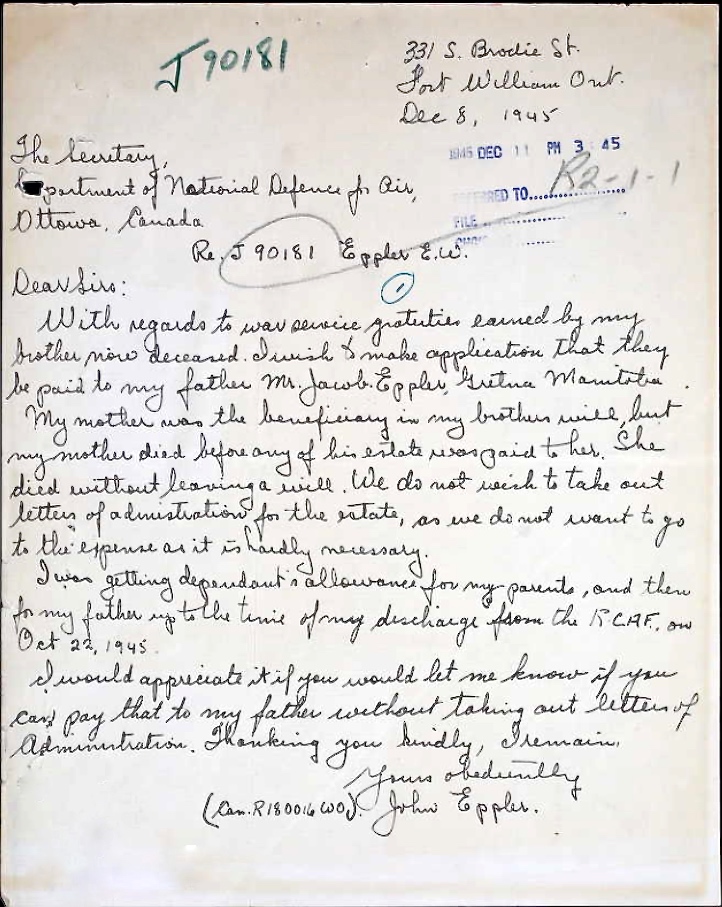 J 90181
331 S. Brodie St.
Fort William Ont.
Dec 8, 1945
1945 DEC 11 PM 3 45
REFERRED TO
R2-1-1
FILE
The Secretary,
Department of National Defence for Air,
Ottowa, Canada
Re. J 90181 Eppler E.W.
1
Dear Sirs:
With regards to war service gratuties earned by my
brother now deceased. I wish to make application that they
be paid to my father Mr. Jacob Eppler, Gretna Manitoba.
My mother was the beneficiary in my brothers will, but
my mother died before any of his estate was paid to her. She
died without leaving a will. We do not wish to take out
letters of admistration for the estate, as we do not want to go
to the expense as it is hardly necessary.
I was getting dependant's allowance for my parents, and then
for my father up to the time of my discharge from the R.C.A.F., on
Oct 22, 1945.
I would appreciate it if you would let me know if you
can pay that to my father without taking out letters of
Administration. Thanking you kindly, I remain,
Yours obediently
(Can. R180016 WO). John Eppler.